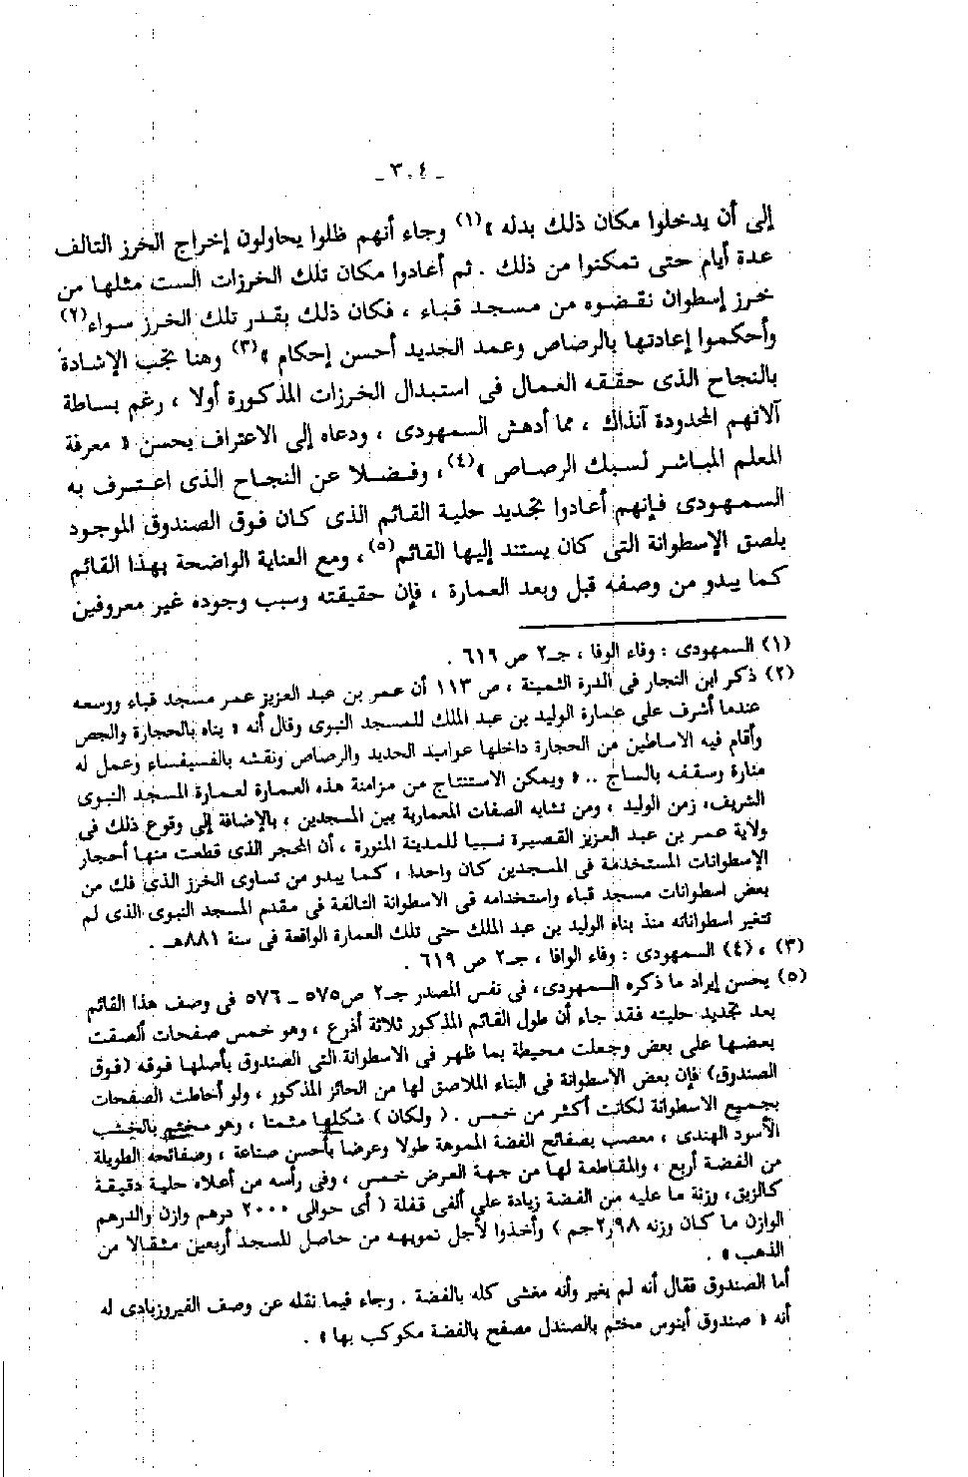 - ٣٠٤ -
إلى أن يدخلوا مكان ذلك بدله » (١) وجاء أنهم ظلوا يحاولون إخراج الخرز التالف
عدة أيام حتى تمكنوا من ذلك . ثم أعادوا مكان تلك الخرزات الست مثلها من
خرز إسطوان نقضوه من مسجد قباء ، فكان ذلك بقدر تلك الخرز سواء (٢)
وأحكموا إعادتها بالرصاص وعمد الحديد أحسن إحكام » (٣) وهنا تجب الإشادة
بالنجاح الذى حققه العمال فى استبدال الخرزات المذكورة أولا ، رغم بساطة
آلاتهم المحدودة آنذاك ، مما أدهش السمهودى ، ودعاه إلى الاعتراف بحسن « معرفة
المعلم المباشر لسبك الرصاص » (٤) ، وفضلا عن النجاح الذى اعترف به
السمهودى فإنهم أعادوا تجديد حلية القائم الذى كان فوق الصندوق الموجود
بلصق الإسطوانة التى كان يستند إليها القائم (٥) ، ومع العناية الواضحة بهذا القائم
كما يبدو من وصفه قبل وبعد العمارة ، فإن حقيقته وسبب وجوده غير معروفين
(١) السمهودى : وفاء الوفا ، جـ٢ ص ٦١٦ .
(٢) ذكر ابن النجار فى الدرة الثمينة ، ص ١١٣ أن عمر بن عبد العزيز عمر مسجد قباء ووسعه
عندما أشرف على عمارة الوليد بن عبد الملك للمسجد النبوى وقال أنه « بناه بالحجارة والجص
وأقام فيه الاساطين من الحجارة داخلها عواميد الحديد والرصاص ونقشه بالفسيفساء وعمل له
منارة وسقفه بالساج .. » ويمكن الاستنتاج من مزامنة هذه العمارة لعمارة المسجد النبوى
الشريف، زمن الوليد ، ومن تشابه الصفات المعمارية بين المسجدين ، بالإضافة إلى وقوع ذلك فى
ولاية عمر بن عبد العزيز القصيرة نسبيا للمدينة المنورة ، أن المحجر الذى قطعت منها أحجار
الإسطوانات المستخدمة فى المسجدين كان واحدا ، كما يبدو من تساوى الخرز الذى فك من
بعض اسطوانات مسجد قباء واستخدامه فى الاسطوانة التالفة فى مقدم المسجد النبوى الذى لم
تتغير اسطواناته منذ بناه الوليد بن عبد الملك حتى تلك العمارة الواقعة فى سنة ٨٨١هـ .
(٣) ، (٤) السمهودى : وفاء الوافا ، جـ٢ ص ٦١٩ .
(٥) يحسن إيراد ما ذكره السمهودى، فى نفس المصدر جـ٢ ص٥٧٥ - ٥٧٦ فى وصف هذا القائم
بعد تجديد حليته فقد جاء أن طول القائم المذكور ثلاثة أذرع ، وهو خمس صفحات ألصقت
بعضها على بعض وجعلت محيطة بما ظهر فى الاسطوانة التى الصندوق بأصلها فوقه (فوق
الصندوق) فإن بعض الإسطوانة فى البناء الملاصق لها من الحائز المذكور ، ولو أحاطت الصفحات
بجميع الاسطوانة لكانت أكثر من خمس . ( ولكان ) شكلها مثمنا ، وهو مختم بالخشب
الأسود الهندى ، معصب بصفائح الفضة المموهة طولا وعرضا بأحسن صناعة ، وصفائحه الطويلة
من الفضة أربع ، والمقاطعة لها من جهة العرض خمس ، وفى رأسه من أعلاه حلية دقيقة
كالزيق، وزنة ما عليه من الفضة زيادة على ألفى قفلة ( أى حوالى ٢٠٠٠ درهم وازن والدرهم
الوازن ما كان وزنه ٢٫٩٨جم ) وأخذوا لأجل تمويهه من حاصل للمسجد أربعين مثقالا من
الذهب » .
أما الصندوق فقال أنه لم يغير وأنه مغشى كله بالفضة . وجاء فيما نقله عن وصف الفيروزبادى له
أنه « صندوق أبنوس مختم بالصندل مصفح بالفضة مكوكب بها » .